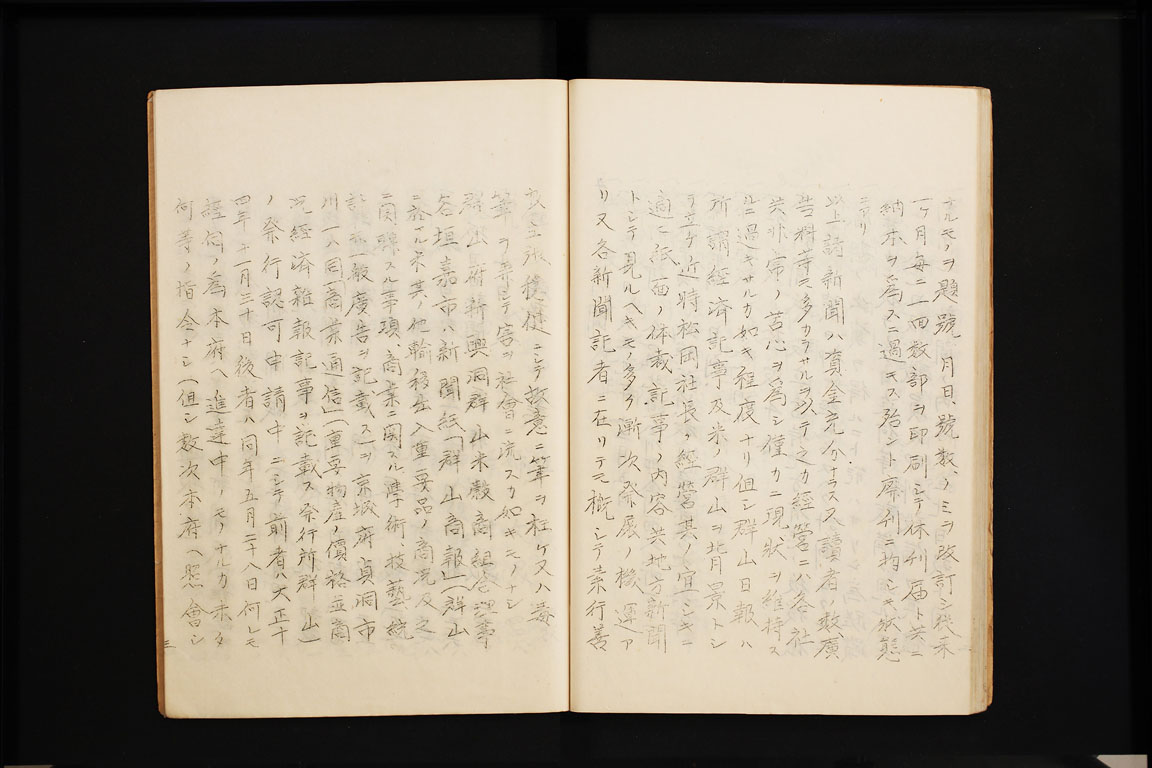 ナルモノヲ題號、月日、號數ノミヲ改訂シ從来
一ケ月毎ニ一回数部ヲ印刷シテ休刊届ト共ニ
納本ヲ為スニ過キス殆ント廃刊ニ均シキ状態
ニアリ
以上諸新聞ハ資金充分ナラス又讀者ノ数廣
告料等モ多カラサルヲ以テ之カ經營ニハ各社
共非常ノ苦心ヲ為シ僅カニ現狀ヲ維持ス
ルニ過キサルカ如キ程度ナリ但シ群山日報ハ
所謂経済記事及米ノ群山ヲ背景トシ
テ立ケ近時松岡社長ノ経營其ノ宜シキニ
適ヒ紙面ノ体裁記事ノ内容共地方新聞
トシテ見ルヘキモノ多ク漸次発展ノ機運ア
リ又各新聞記者ニ在リテモ概シテ素行善
ニシテ故意ニ筆ヲ枉ケ又ハ毒
筆ヲ弄シテ害ヲ社會ニ流スカ如キモノナシ
群山府新興洞群山米穀商組合理事
谷垣嘉市ハ新聞紙「群山商報」(群山
ニ於ケル米其ノ他輸移出入重要品ノ商况及之
ニ関聯スル事項、商業ニ関スル學術、技藝、統
計並一般廣告ヲ記載ス)ヲ京城府貞洞市
川一ハ同「商業通信」(重要物産ノ價格並商
况経済雑報記事ヲ記載ス発行所群山)
ノ発行認可申請中ニシテ前者ハ大正十
四年十一月三十日後者ハ同年五月二十八日何レモ
経伺ノ為本府ヘ進達中ノモノナルカ未タ
何等ノ指令ナシ(但シ数次本府ヘ照會シ
三